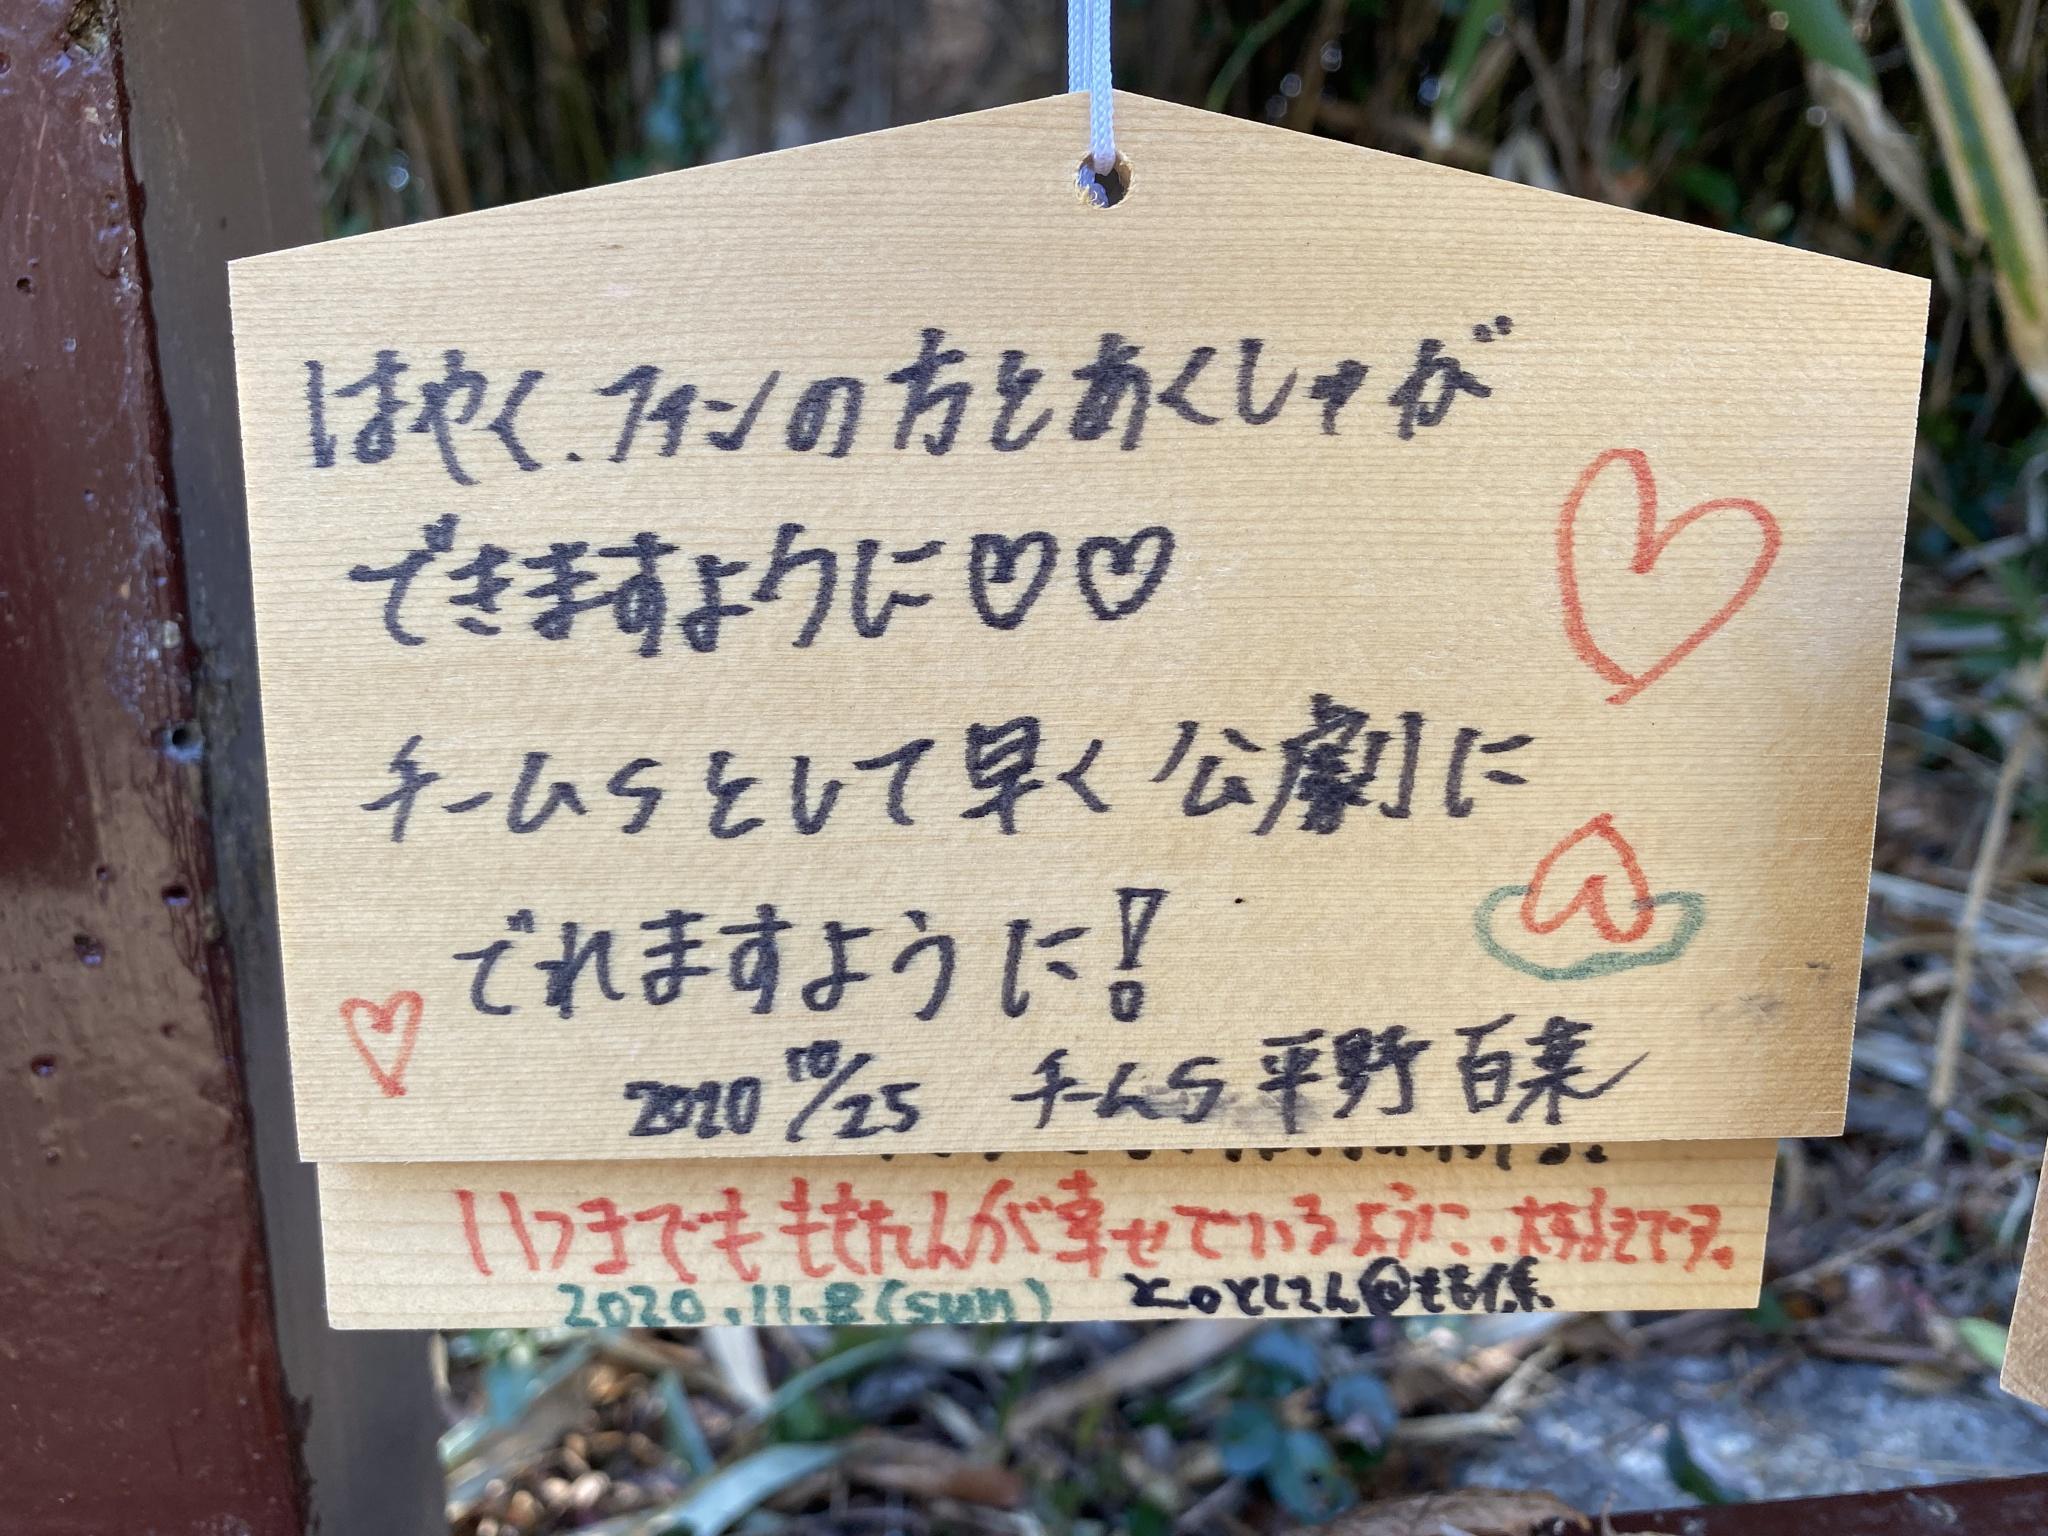 はやく、ファンの方とあくしゅが
できますように♡♡
チームSとして早く公劇に
でれますように!
2020 10/25 チームS 平野 百菜
いつまでもももたんが幸せでいるように、大好きです。
2020.11.8(sun)